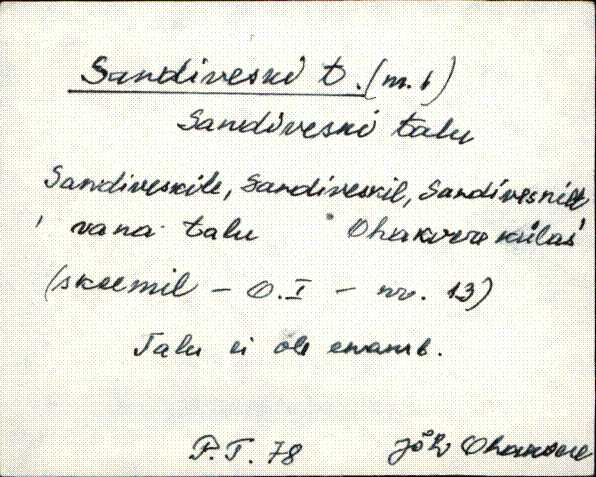 Sandiveski t. (m. t)
Sandiveski talu
Sandiveskile, Sandiveskil, Sandiveskilt
, vana talu Ohakvere külas
(skeemil - O.I - nr. 13)
Talu ei ole enamb.
P.T. 78 Jõh Ohakvere